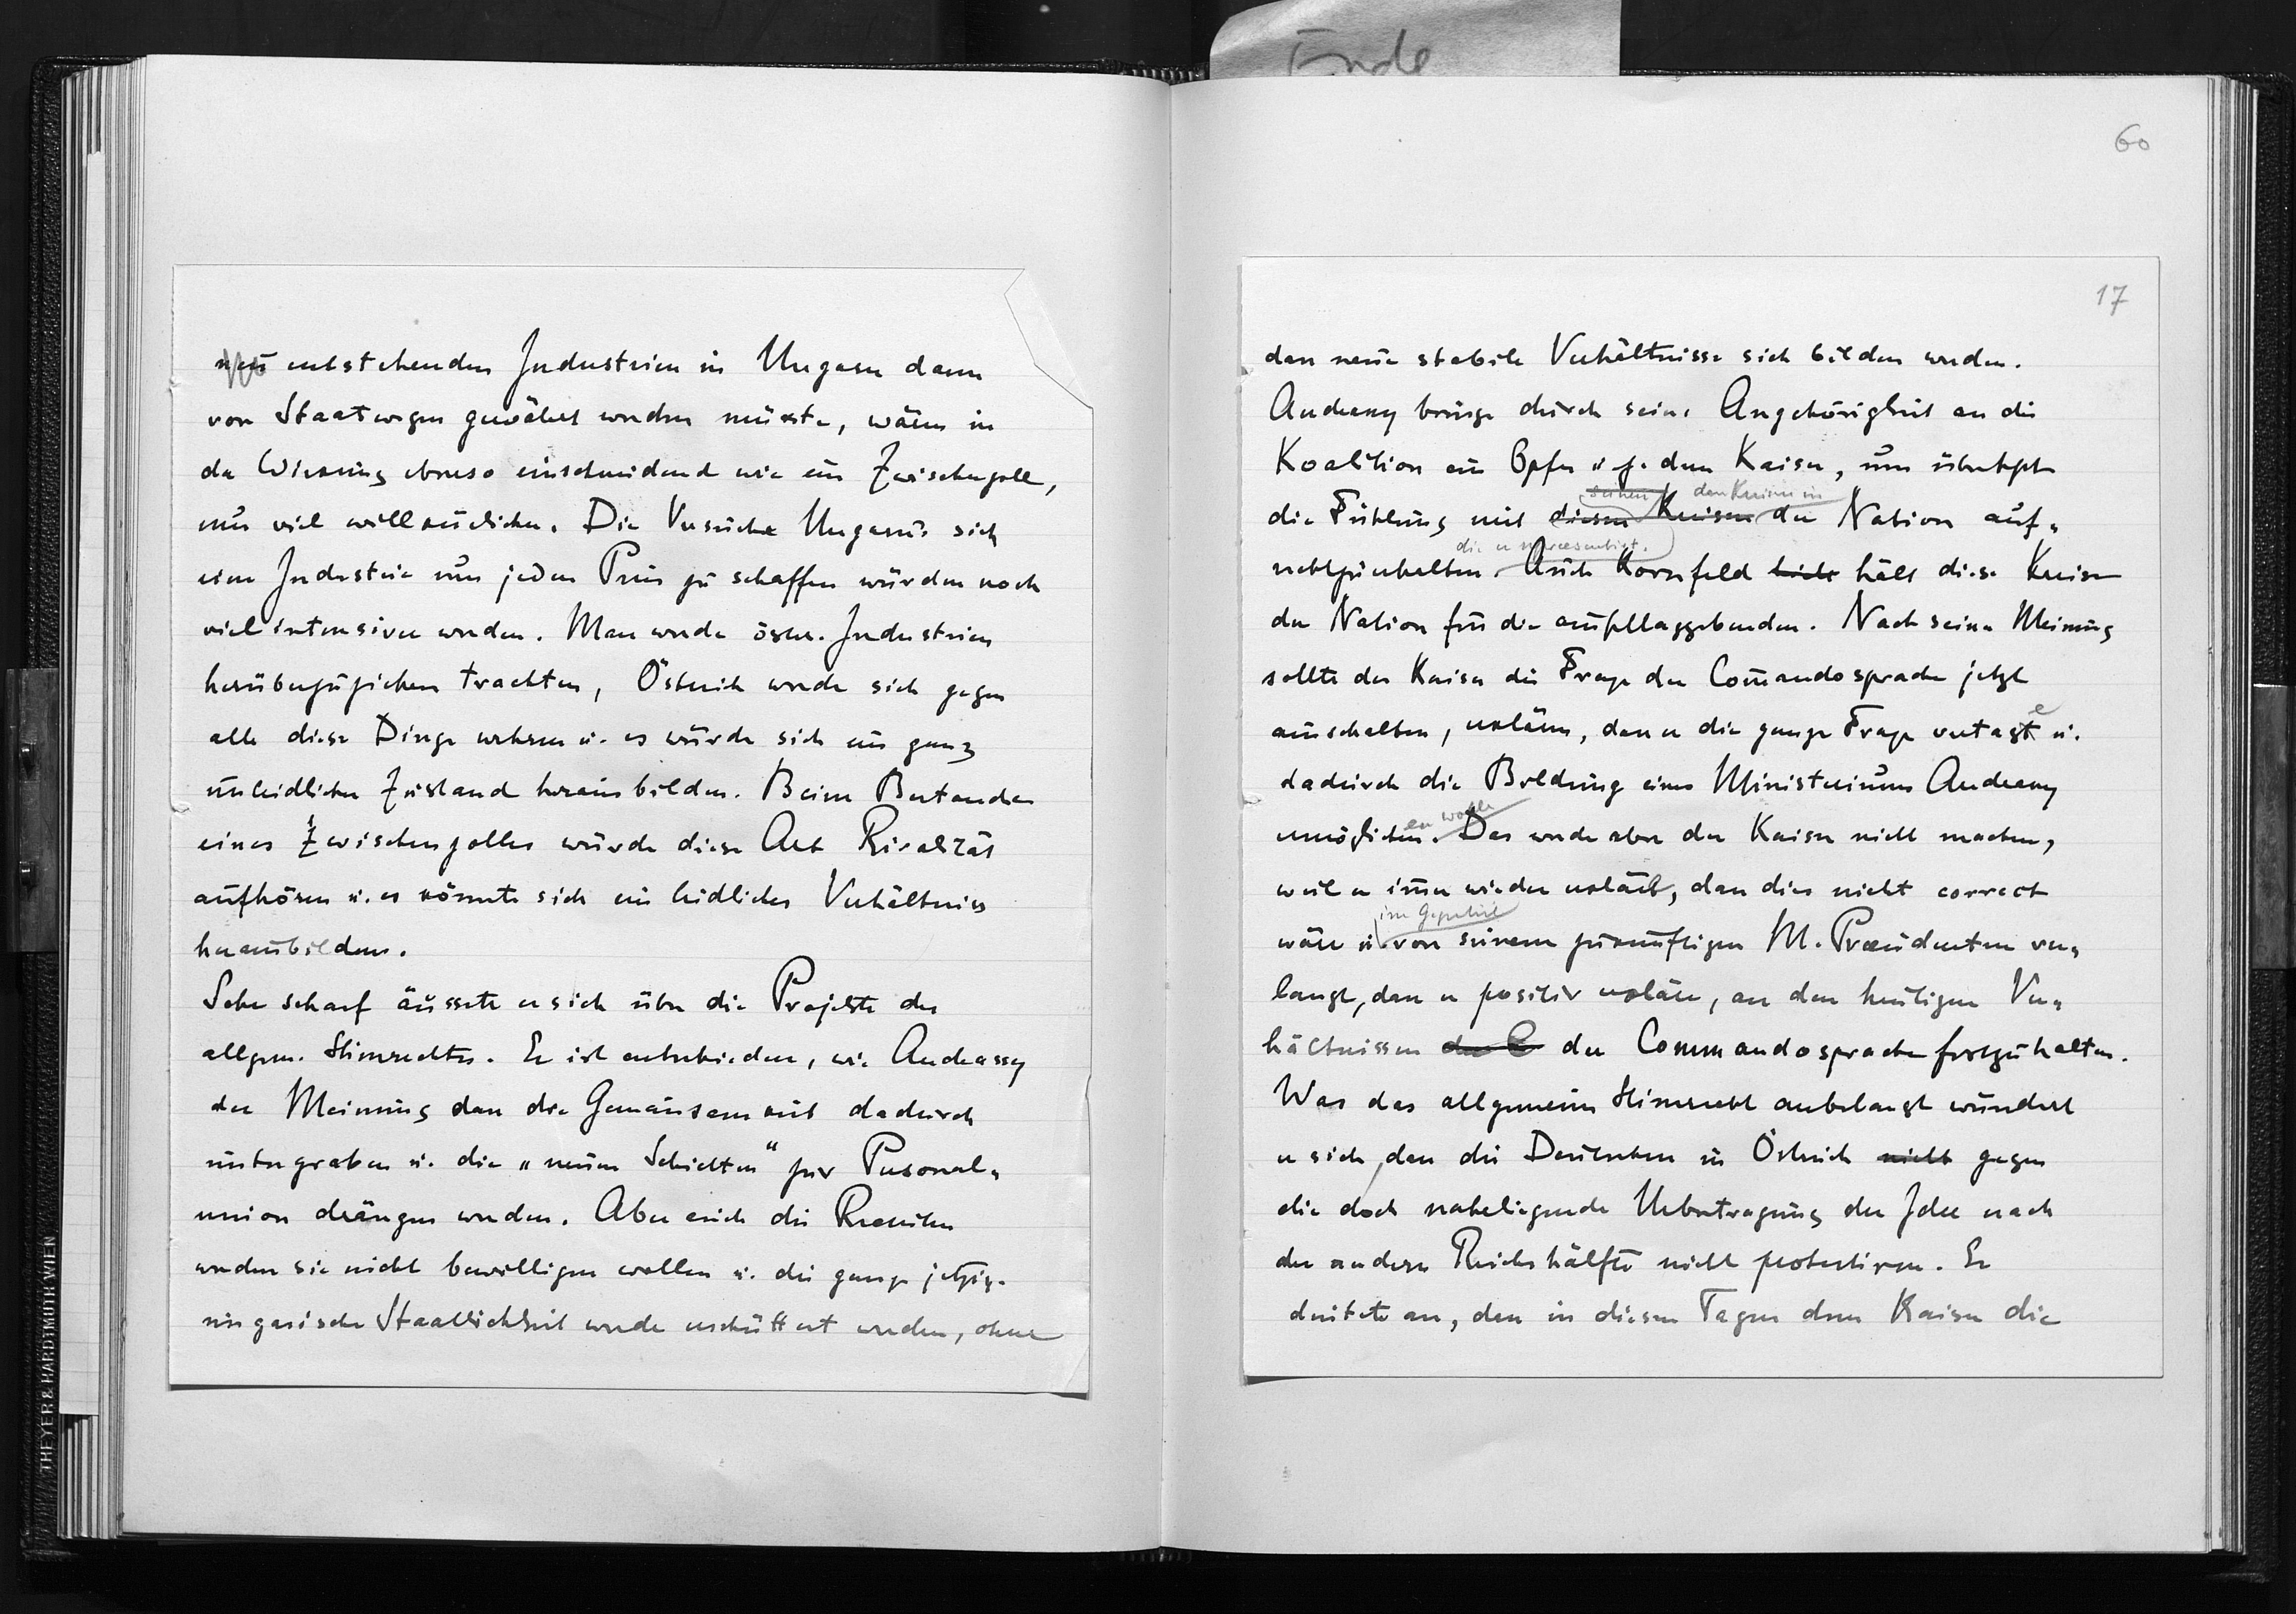 Ende
60
17
neu entstehenden Industrien in Ungarn dann
von Staatwegen gewährt werden müsste, wären in
der Wirkung ebenso einschneidend wie ein Zwischenzoll,
nur viel willkürlicher. Die Versuche Ungarns sich
eine Industrie um jeden Preis zu schaffen würden noch
viel intensiver werden. Man werde österr. Industrien
herüberzuziehen trachten, Österreich werde sich gegen
alle diese Dinge wehren u. es würde sich ein ganz
unleidlicher Zustand herausbilden. Beim Bestande
eines Zwischenzolles würde diese Art Rivalität
aufhören u. es könnte sich ein leidliches Verhältniss
herausbilden.
Sehr scharf äusserte er sich über die Projekte des
allgem. Stimrechtes. Er ist entschieden, wie Andrassy
der Meinung dass die Gemeinsamkeit dadurch
untergraben u. die „neuen Schichten" zur Personal-
union drängen werden. Aber auch die Rekruten
werden sie nicht bewilligen wollen u. die ganze jetzige
ungarische Staatlichkeit werde erschüttert werden, ohne
dass neue stabile Verhältnisse sich bilden werden.
Andrassy bringe durch seine Angehörigkeit an die
Koalition ein Opfer u. z. dem Kaiser, um überhaupt
seinen den Kreisen in
die Fühlung mit diesen Kreisen der Nation auf-
die er repraesentirt.
rechtzuerhalten. Auch Kornfeld hält diese Kreise
der Nation für die ausschlaggebenden. Nach seiner Meinung
sollte der Kaiser die Frage der Comandosprache jetzt
ausschalten, erklären, dass er die ganze Frage vertage u.
dadurch die Bildung eines Ministeriums Andrassy
en wolle
ermöglichen. Das werde aber der Kaiser nicht machen,
weil er immer wieder erklärt, dass dies nicht correct
im Gegentheil
wäre u. von seinem zukünftigen M. Praesidenten ver-
langt, dass er positiv erkläre, an den heutigen Ver-
hältnissen der Commandosprache festzuhalten.
Was das allgemeine Stimrecht anbelangt wundert
er sich, dass die Deutschen in Östreich nicht gegen
die doch naheliegende Uebertragung der Idee nach
der andern Reichshälfte nicht protestiren. Er
deutete an, dass in diesen Tagen dem Kaiser die
THEYER & HARDTMUTH WIEN